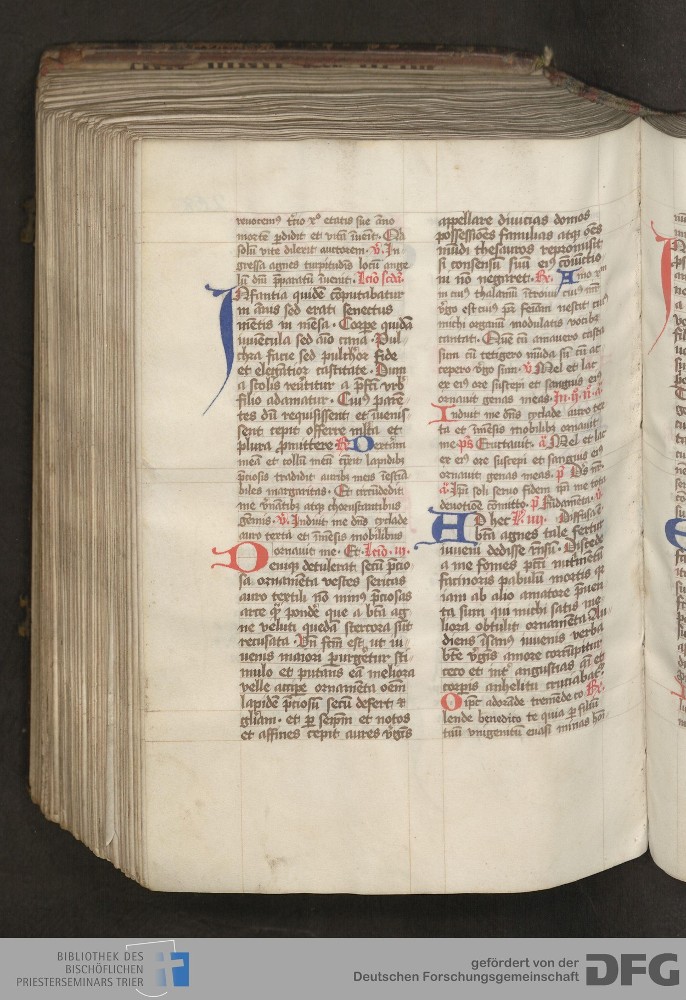 mortē ꝑdidit et vitā īuēit. Qm̄
solū vite dilexit auctorem. v̄. In
gressa agnes turpitudīs locū ange
lū dn̄i p̄paratū īuenit. Lcō scd̄a
INfantia quidē cōputabatur
in ānis sed erat senectus
mētis in mēsa. Corpe quidē
iuuēcula sed aīo cana. Pul
chra facie sed pulchior fide
et elegātior castitate. Dum
a scolis reūtitur a p̄fcī vrb̄
filio adamatur. Cuiꝰ paren
tes dū requisissent et īuenis
sent cepit offerre ml̄ta et
plura ꝓmittere R̄ Dexterā
meā et collū meū cīxit lapidibꝫ
p̄ciosis tradidit auribꝫ meis īestīa
biles margaritas. Et circūdedit
me v̄nātibꝫ atqꝫ choruscantibus
gēmis. v̄. Induit me dn̄s ciclade
auro texta et īmēsis mobilibus
ornauit me. Et. Lcō. iij.
Deniqꝫ detulerat secū p̄cio
sa ornamēta vestes sericas
auro textili nō minꝰ p̄ciosas
arte qꝫ pondē que a bt̄a ag
ne veluti quedā stercora sūt
recusata. Vn̄ fcm̄ est ut iu
uenis maiori ꝑurgetur sti
mulo et putans eā meliora
velle accipe ornamēta oēm
lapidē p̄ciosū secū defert ꝛ
gl̄iam. et ꝑ seip̄m et notos
et affines cepit aures v̄gīs
appellare diuicias domos
possessiōes familias atqꝫ oēs
mūdi thesauros repromisit
si consensū suū eiꝰ cōiūctio
ni nō negaret. R̄. Amo xm̄
in cuiꝰ thalamū ītroiui cuiꝰ mr̄
v̄go est cuiꝰ pr̄ feīam nescit cuiꝰ
michi organū modulatis vocibꝫ
cantat. Quē cū amauero casta
sum cū tetigero mūda sū cū ac
cepero v̄go sum. v̄ Mel et lac
ex eiꝰ ore suscepi et sanguis eiꝰ
ornauit genas meas. In. ij. n̄. a
Induit me dn̄s ciclade auro tex
ta et īmēsis mobilibꝫ ornauit
me ps̄ Eructauit. a Mel et lac
ex eiꝰ ore suscepi et sanguis eiꝰ
ornauit genas meas. p̄ Ds̄ nr̄.
a. Ip̄i soli seruo fidem ip̄i me tota
deuotiōe cōmitto. p̄ Fūdamēta. v̄
AD hec L. iiij. Diffusa ē
bt̄a agnes tale fertur
iuueni dedisse rn̄sū. Discede
a me fomes pctī nutimētū
facinoris pabulū mortis qꝫ
iam ab alio amatore p̄uen
ta sum qui michi satis me
liora obtulit ornamēta. Au
diens īsanꝰ iuuenis verba
bt̄e v̄gīs amore corripitur
ceco et int̄ angustias aī et
corpis anhelitu cruciabat. R̄.
Oīpc̄ adorāde tremēde co
lende benedico te quia ꝑ filiū
tuū vnigenitū euasi minas hoī
BIBLIOTHEK DES
BISCHÖFLICHEN
PRIESTERSEMINARS TRIER
gefördert von der
Deutschen Forschungsgemeinschaft DFG